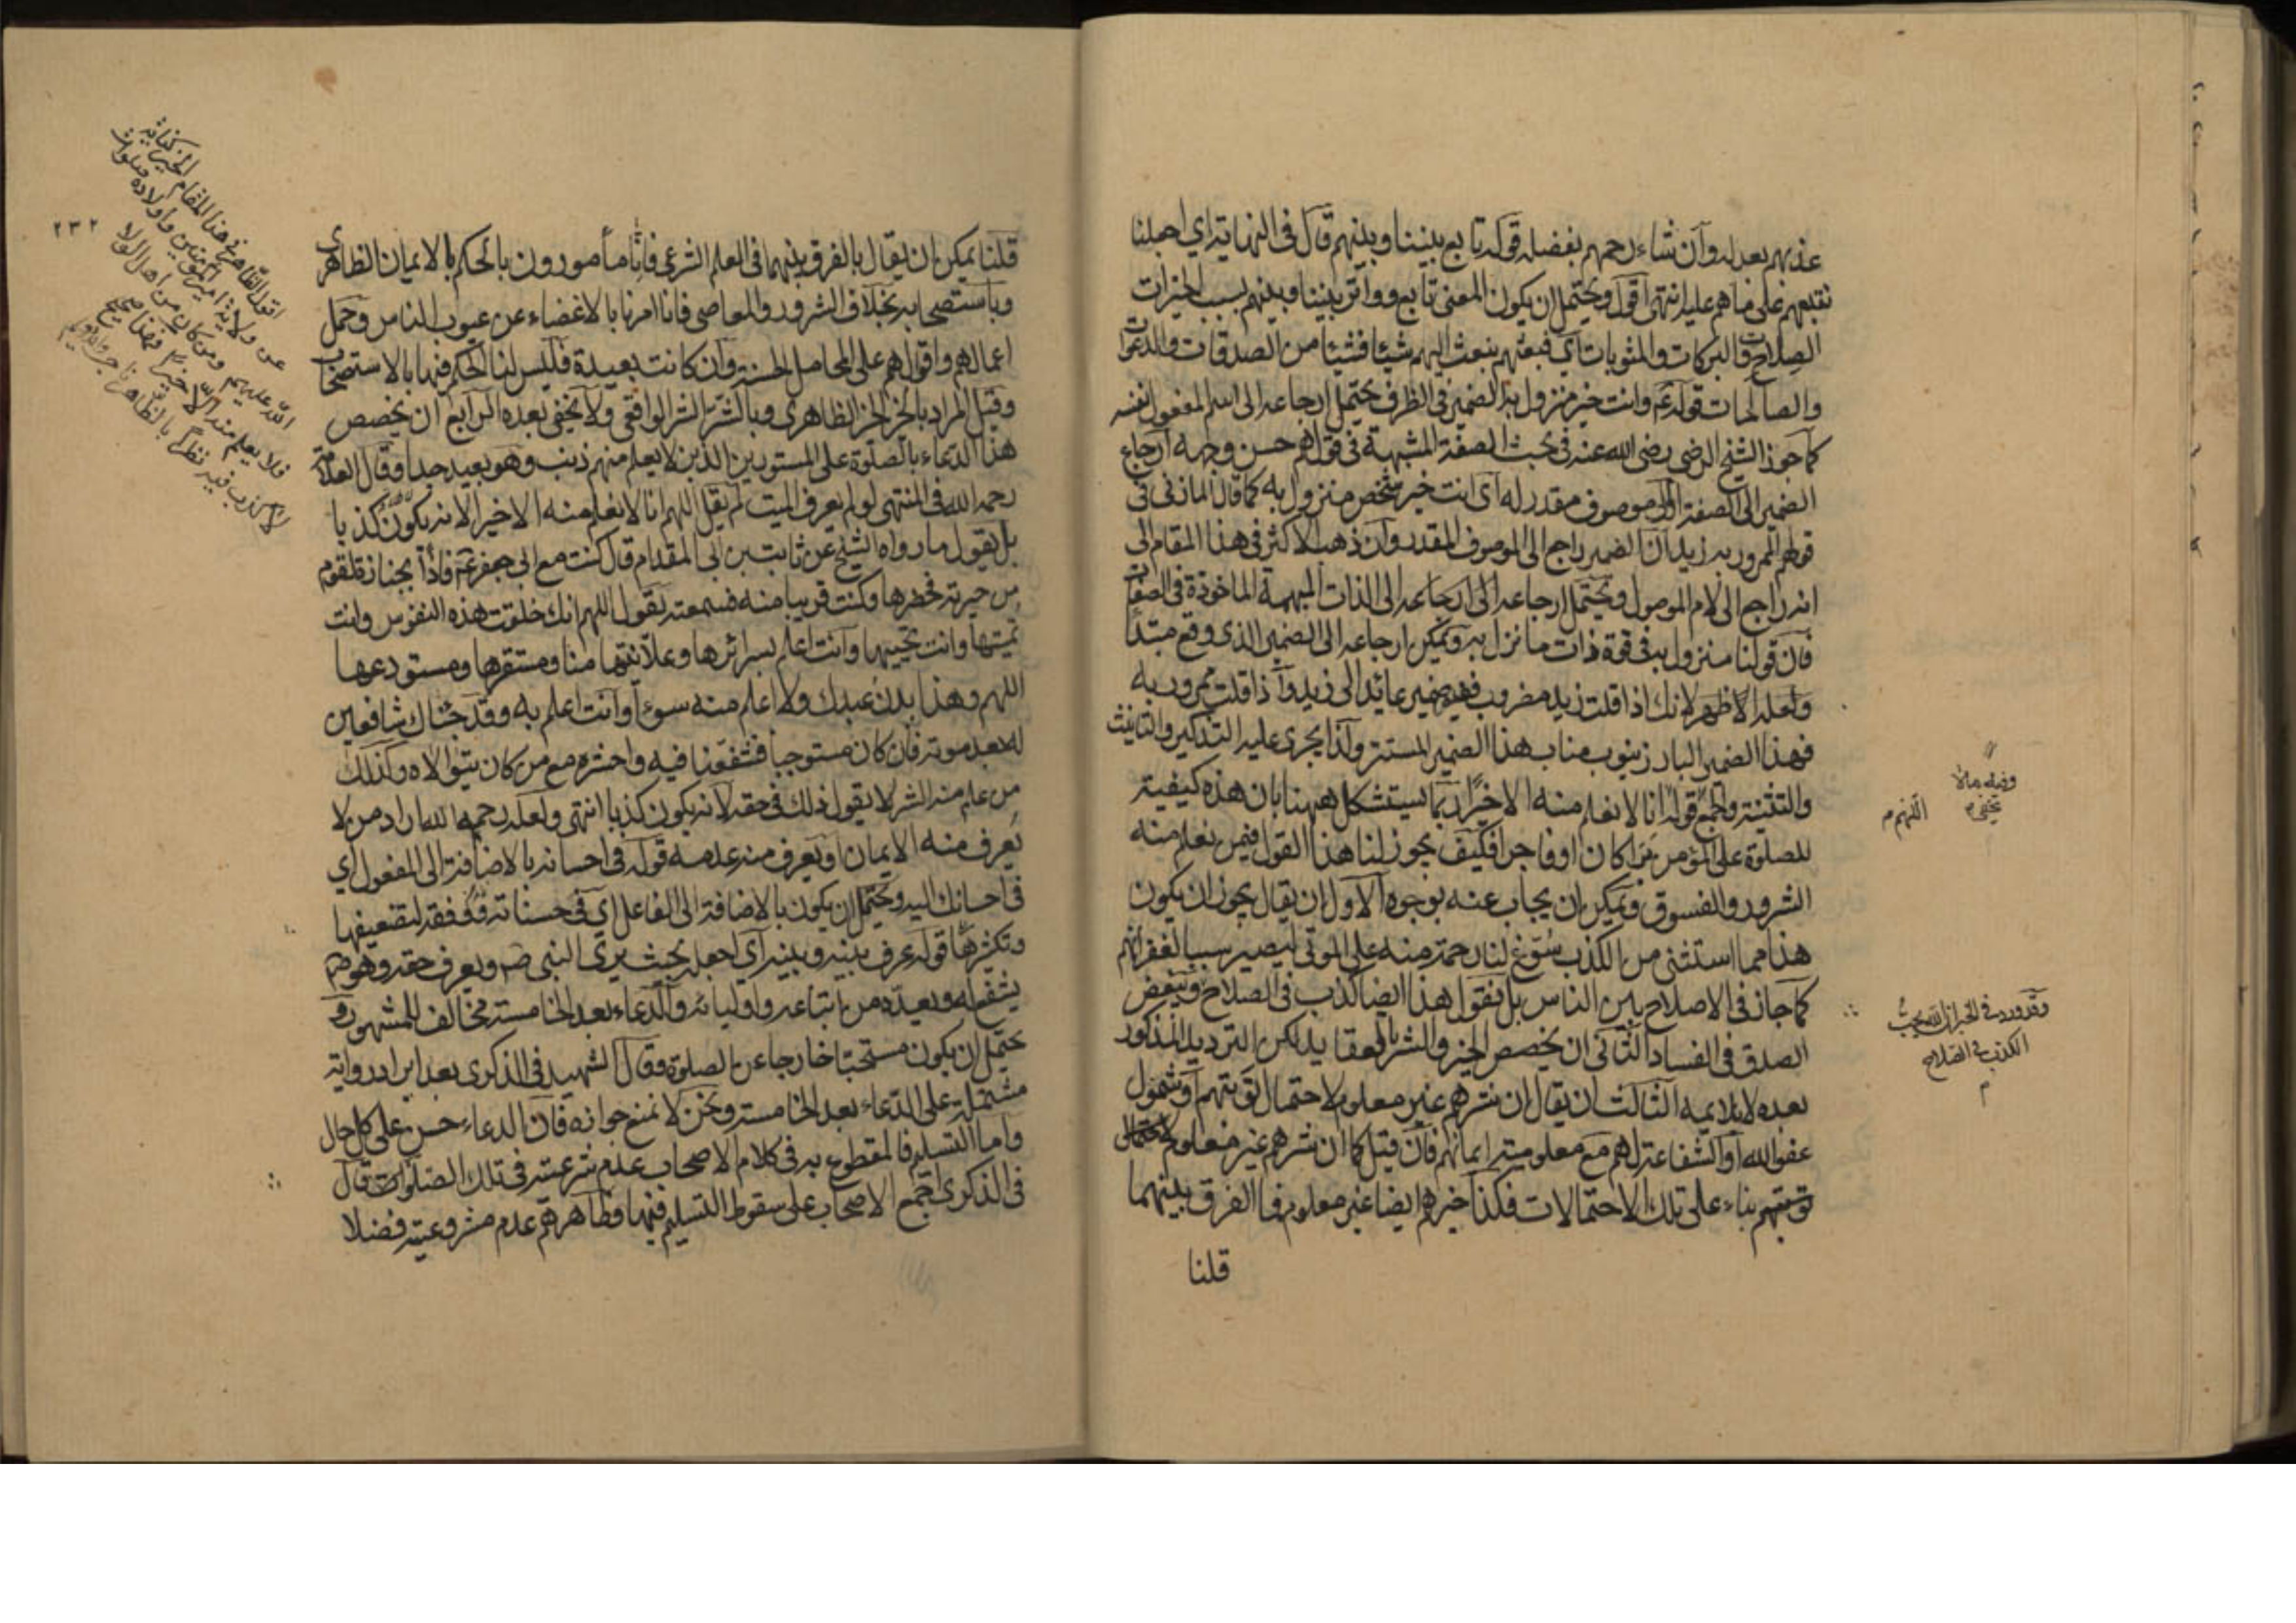 عذبهم بعدله وان شاء رحمهم بفضله قوله تابع بيننا وبينهم قال في النهاية اي اجعلنا
نتبعهم على ما هم عليه انتهى اقول ويحتمل ان يكون المعنى تابع وواتر بيننا وبينهم بسبب الخيرات
والبركات والمثوبات اي فبعثهم ينعث اليهم شيئا فشيئا من الصدقات والدعوات
والصالحات قوله عم وانت خير منزول به الضمير في الظرف يحتمل ارجاعه الى اسم المفعول نفسه
كما جوز الشيخ الرضي رضي الله عنه في بحث الصفة المشبهة في قولهم حسن وجهه ارجاع
الضمير الى الصفة او الى موصوف مقدر له اي انت خير شخص منزول به كما قال المازني في
قولهم الممرور به زيد ان الضمير راجع الى الموصوف المقدر وان ذهب الاكثر في هذا المقام الى
انه راجع الى لام الموصول ويحتمل ارجاعه الى ارجاعه الى الذات المبهمة الماخوذة في الصفات
فان قولنا منزول به في قوة ذات ما نزل به ويمكن ارجاعه الى الضمير الذي وقع مبتدأ
ولعله الاظهر لانك اذا قلت زيد مضروب ففيه ضمير عائد الى زيد واذا قلت ممرور به
فهذا الضمير البارز ينوب مناب هذا الضمير المستتر ولذا يجري عليه التذكير والتانيث
والتثنية والجمع قوله انا لا نعلم منه الا خيرا ربما يستشكل ههنا بان هذه كيفية
للصلوة على المؤمن برا كان او فاجرا فكيف يجوز لنا هذا القول فيمن نعلم منه
الشرور والفسوق ويمكن ان يجاب عنه بوجوه الاول ان يقال يجوز ان يكون
هذا مما استثنى من الكذب سوغ لنا رحمة منه على الموتى ليصير سببا لغفرانهم
كما جاز في الاصلاح بين الناس بل نقول هذا ايضا كذب في الصلاح ويبغض
الصدق في الفساد الثاني ان يخصص الخير والشر بالعقايد لكن الترديد المذكور
بعده لا يلايمه الثالث ان يقال ان شرهم غير معلوم لاحتمال توبتهم او شمول
عفو الله او الشفاعة لهم مع معلومية ايمانهم فان قيل كما ان شرهم غير معلوم لاحتمال
توبتهم بناء على تلك الاحتمالات فكذا خيرهم ايضا غير معلوم فما الفرق بينهما
قلنا
اللهم م
وقد ورد في الخبر ان الله يحب
الكذب في الصلاح
م
قلنا يمكن ان يقال بالفرق بينهما في العلم الشرعي فانا مأمورون بالحكم بالايمان الظاهري
وباستصحابه بخلاف الشرور والمعاصي فانا امرنا بالاغضاء عن عيوب الناس وحمل
اعمالهم واقوالهم على المحامل الحسنة وان كانت بعيدة فليس لنا الحكم فيها بالاستصحاب
وقيل المراد بالخير الخير الظاهري وبالشر الشر الواقعي ولا يخفى بعده الرابع ان يخصص
هذا الدعاء بالصلوة على المستورين الذين لا يعلم منهم ذنب وهو بعيد جدا وقال العلامة
رحمه الله في المنتهى لو لم يعرف الميت لم يقل اللهم انا لا نعلم منه الا خيرا لانه يكون كذبا
بل يقول ما رواه الشيخ عن ثابت بن ابي المقدام قال كنت مع ابي جعفر عم فاذا بجنازة لقوم
من جيرته فحضرها وكنت قريبا منه فسمعته يقول اللهم انك خلقت هذه النفوس وانت
تميتها وانت تحييها وانت اعلم بسرائرها وعلانيتها منا ومستقرها ومستودعها
اللهم وهذا بدن عبدك ولا اعلم منه سوءا وانت اعلم به وقد جئناك شافعين
له بعد موته فان كان مستوجبا فشفعنا فيه واحشره مع من كان يتولاه وكذلك
من علم منه الشر لا يقول ذلك في حقه لانه يكون كذبا انتهى ولعله رحمه الله اراد من لا
يعرف منه الايمان او يعرف منه عدمه قوله في احسانه بالاضافة الى المفعول اي
في احسانك اليه ويحتمل ان يكون بالاضافة الى الفاعل اي في حسناته بتضعيفها
وتكثيرها قوله عرف بينه وبينه اي اجعله بحيث يرى النبي صم ويعرف حقه وهو صم
يشفع له ويعده من اتباعه واوليائه والدعاء بعد الخامسة مخالف للمشهور و
يحتمل ان يكون مستحبا خارجا عن الصلوة وقال الشهيد في الذكرى بعد ايراد رواية
مشتملة على الدعاء بعد الخامسة ونحن لا نمنع جوازه فان الدعاء حسن على كل حال
واما التسليم فالمقطوع به في كلام الاصحاب عدم شرعيته في تلك الصلوات قال
في الذكرى اجمع الاصحاب على سقوط التسليم فيها وظاهرهم عدم مشروعيته فضلا
٢٣٢
اقول الظاهر في هذا المقام الخير كناية
عن ولاية امير المؤمنين واولاده صلوات
الله عليهم ومن كان من اهل الولا
فلا يعلم منه الا خيرا فهذا صحيح
لا كذب فيه نظرا بالظاهر